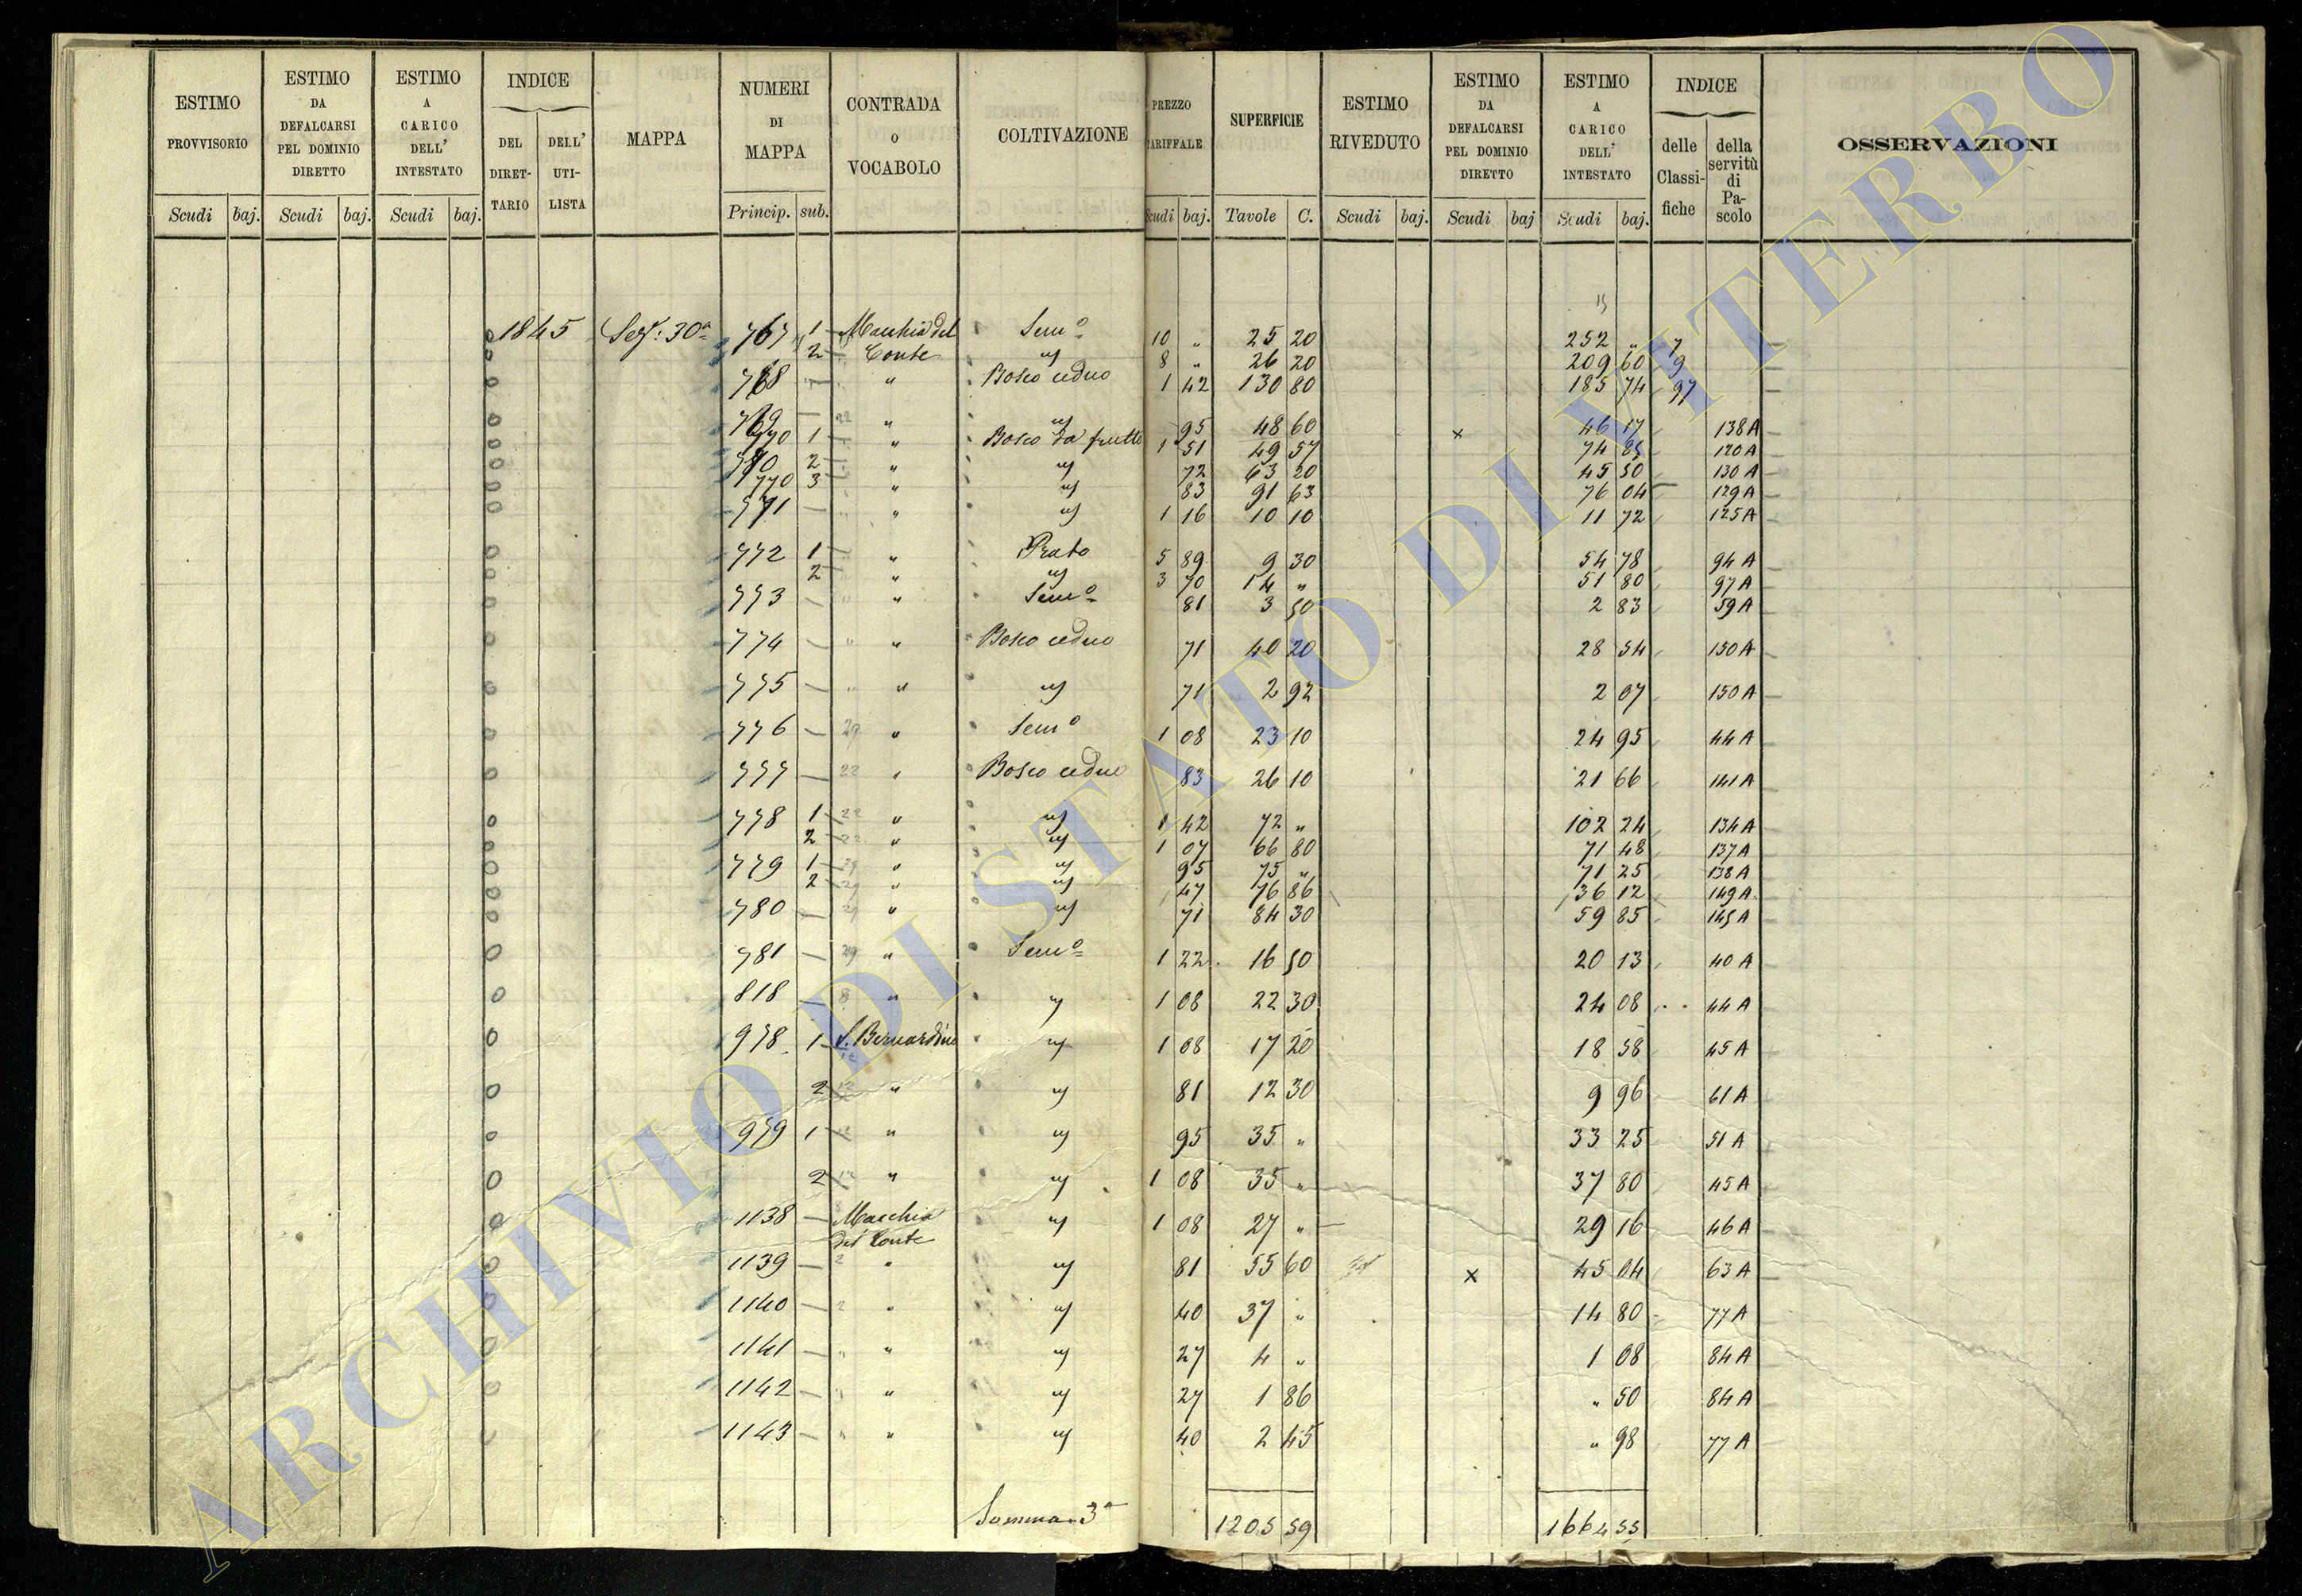 ESTIMO PROVVISORIO Scudi baj.
ESTIMO DA DEFALCARSI PEL DOMINIO DIRETTO Scudi baj.
ESTIMO A CARICO DELL' INTESTATO Scudi baj.
INDICE DEL DIRET-TARIO DELL' UTI-LISTA
MAPPA
NUMERI DI MAPPA Princip. sub.
CONTRADA O VOCABOLO
COLTIVAZIONE
PREZZO TARIFFALE Scudi baj.
SUPERFICIE Tavole C.
ESTIMO RIVEDUTO Scudi baj.
ESTIMO DA DEFALCARSI PEL DOMINIO DIRETTO Scudi baj
ESTIMO A CARICO DELL' INTESTATO Scudi baj.
INDICE delle Classi-fiche della servitù di Pa-scolo
OSSERVAZIONI
1845 Sez: 30ª 767 1 Macchia del Sem.o 10 " 25 20 252 " 7
2 Conte id 8 " 26 20 209 60 9
768 — " Bosco ceduo 1 42 130 80 185 74 97
769 — 22 " id 95 48 60 x 46 17 138 A
770 1 " Bosco da frutto 1 51 49 57 74 85 120 A
770 2 " id 72 63 20 45 50 130 A
770 3 " id 83 91 63 76 04 129 A
771 — " id 1 16 10 10 11 72 125 A
772 1 " Prato 5 89 9 30 54 78 94 A
2 " id 3 70 14 " 51 80 97 A
773 — " Sem.o 81 3 50 2 83 59 A
774 — " " Bosco ceduo 71 40 20 28 54 150 A
775 — " " id 71 2 92 2 07 150 A
776 — 29 " Sem.o 1 08 23 10 24 95 44 A
777 — 22 " Bosco ceduo 83 26 10 21 66 141 A
778 1 22 " id 1 42 72 " 102 24 134 A
2 22 " id 1 07 66 80 71 48 137 A
779 1 29 " id 95 75 " 71 25 138 A
2 29 " id 47 76 86 36 12 149 A
780 — 29 " id 71 84 30 59 85 145 A
781 — 29 " Sem.o 1 22 16 50 20 13 40 A
818 — 8 " id 1 08 22 30 24 08 44 A
978 1 S. Bernardino id 1 08 17 20 18 58 45 A
2 12 " id 81 12 30 9 96 61 A
979 1 12 " id 95 35 " 33 25 51 A
2 12 " id 1 08 35 " 37 80 45 A
1138 — Macchia del Conte id 1 08 27 " 29 16 46 A
1139 — 2 " id 81 55 60 x 45 04 63 A
1140 — 2 " id 40 37 " 14 80 77 A
1141 — " " id 27 4 " 1 08 84 A
1142 — " " id 27 1 86 " 50 84 A
1143 — " " id 40 2 45 " 98 77 A
Somma 3ª 1205 59 1664 55
ARCHIVIO DI STATO DI VITERBO